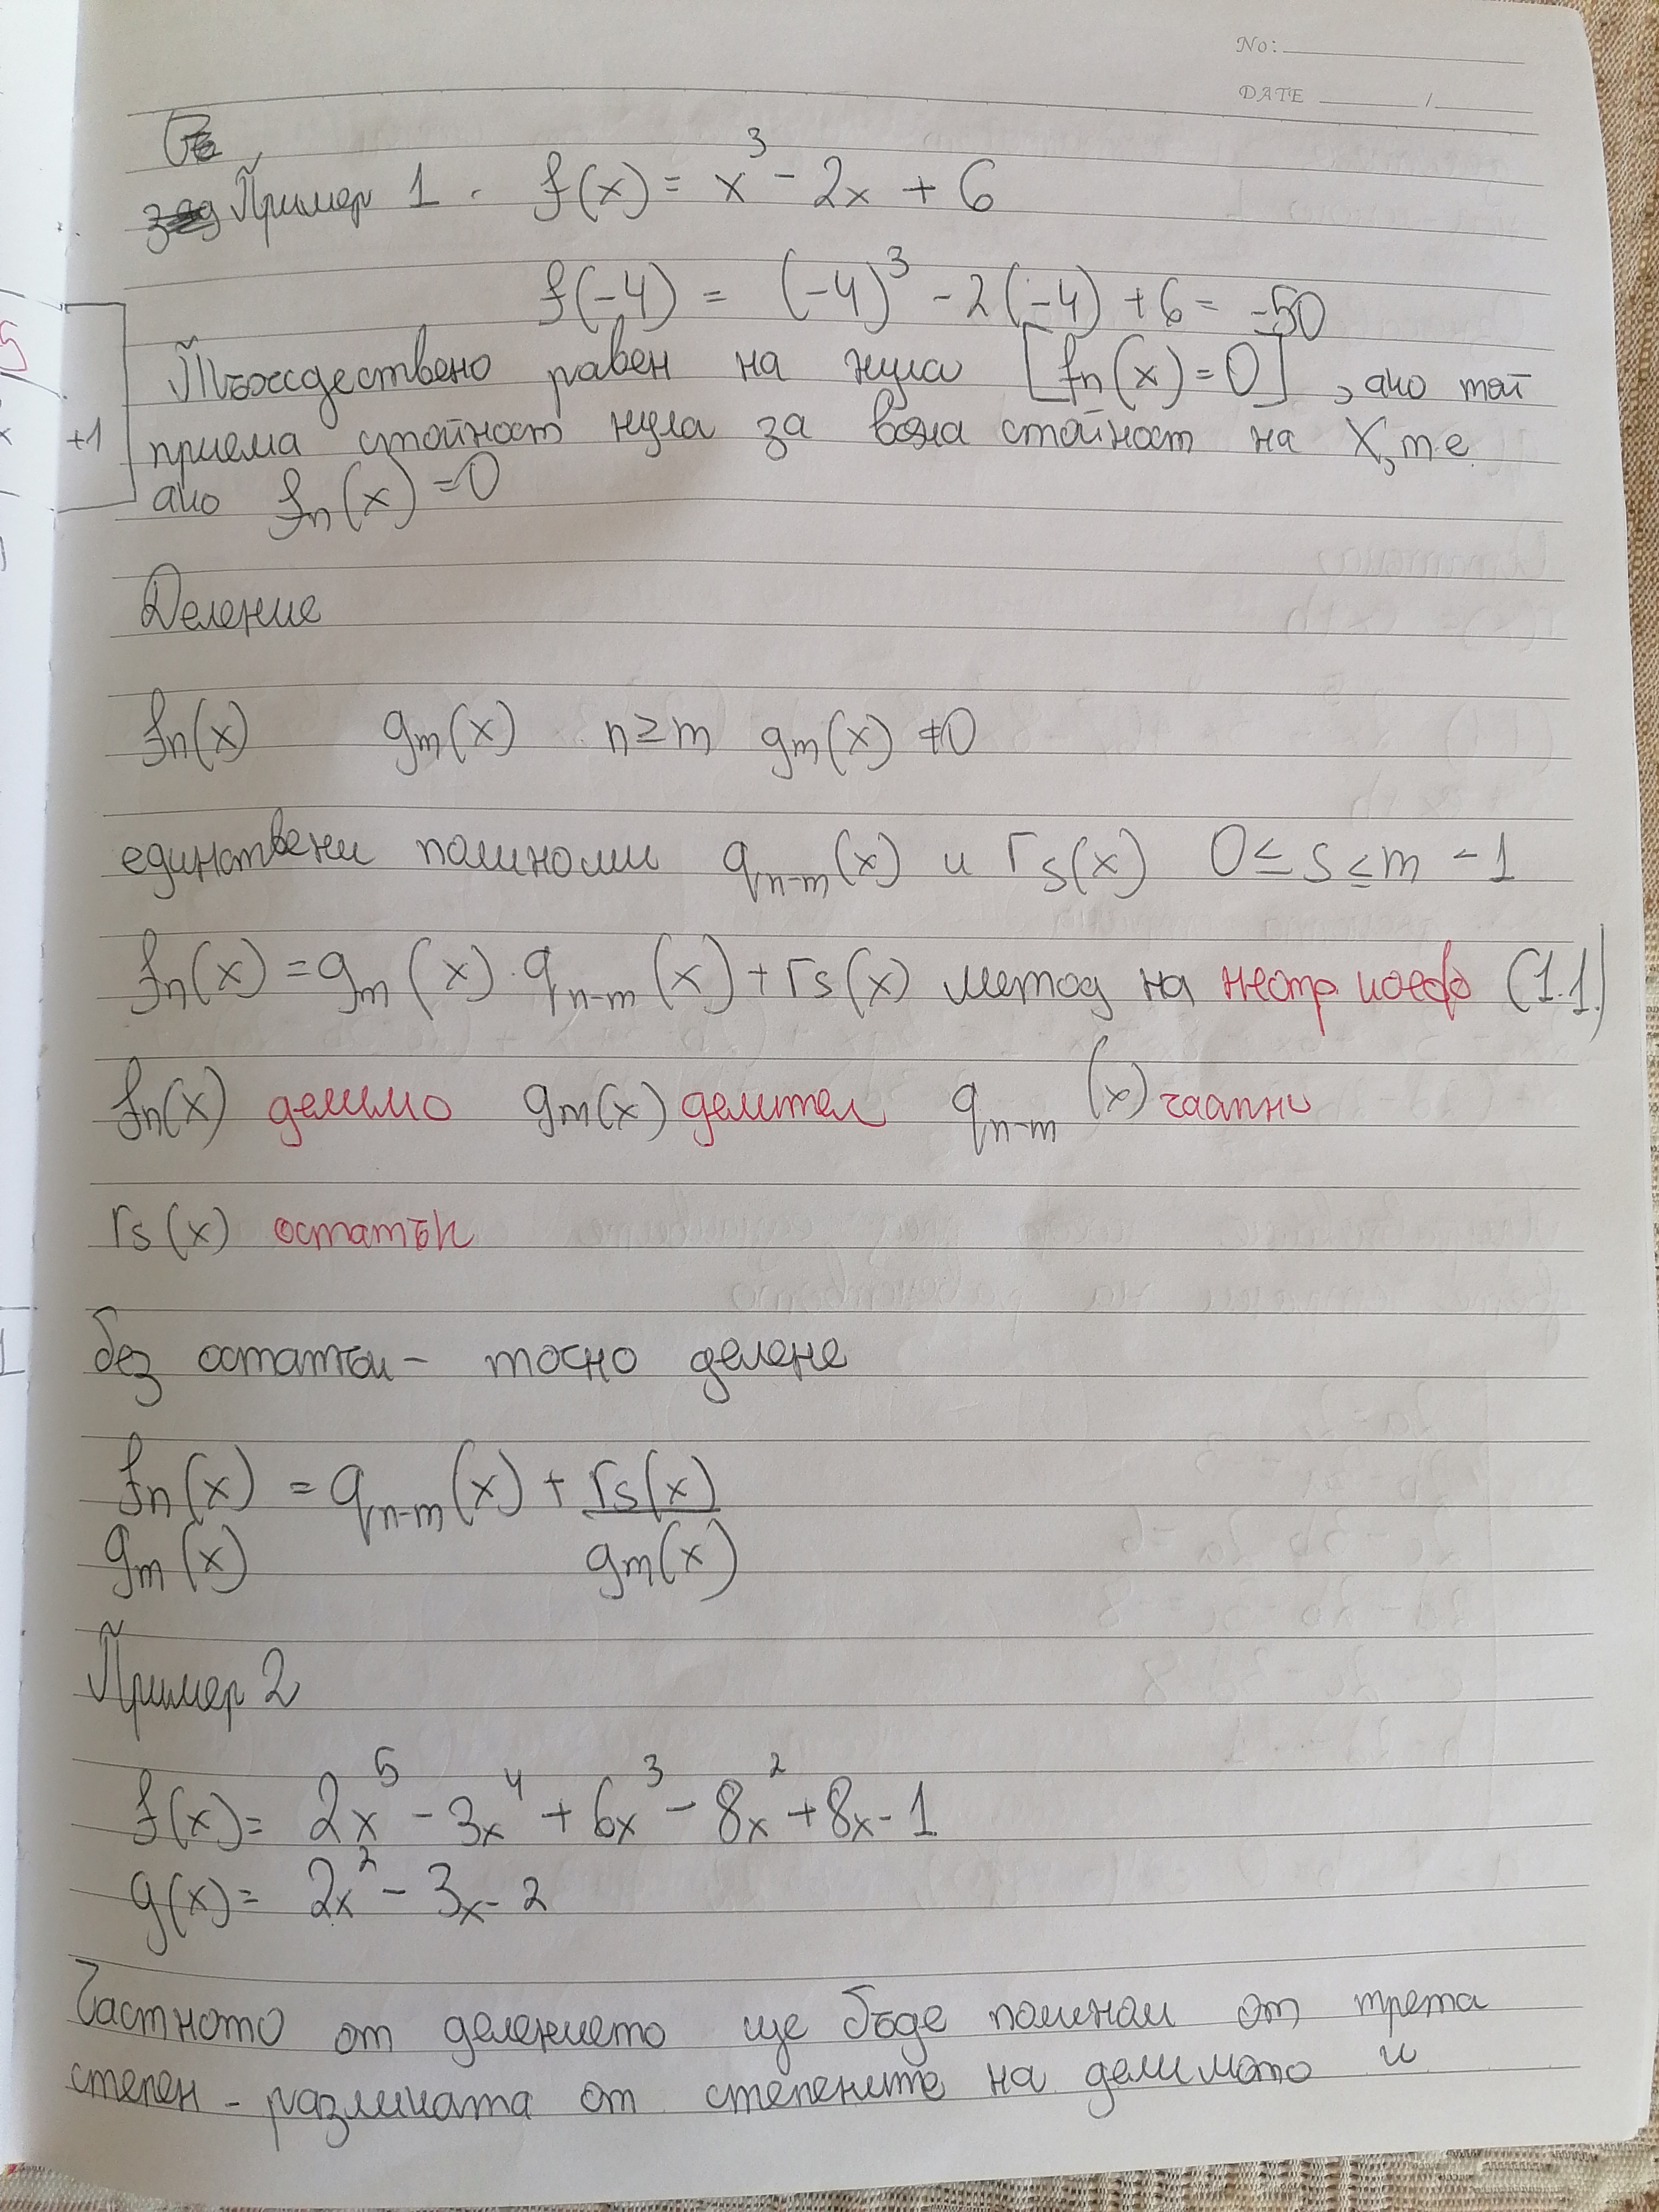 No:
DATE /
Пример 1. f(x) = x³ - 2x + 6
f(-4) = (-4)³ - 2(-4) + 6 = -50
Тъждествено равен на нула [fn(x)=0], ако той
приема стойност нула за всяка стойност на X, т.е.
ако fn(x)=0
+1
5
Деление
fn(x) gm(x) n≥m gm(x) ≠0
единствени полиноми qn-m(x) и rs(x) 0≤s≤m-1
fn(x)=gm(x).qn-m(x)+rs(x) метод на неопр коеф (1.1)
fn(x) делимо gm(x) делител qn-m(x) частно
rs(x) остатък
без остатък - точно делене
fn(x) = qn-m(x) + rs(x)
gm(x) gm(x)
Пример 2
f(x)= 2x⁵ - 3x⁴ + 6x³ - 8x² + 8x - 1
g(x)= 2x² - 3x - 2
Частното от делението ще бъде полином от трета
степен - разликата от степените на делимото и